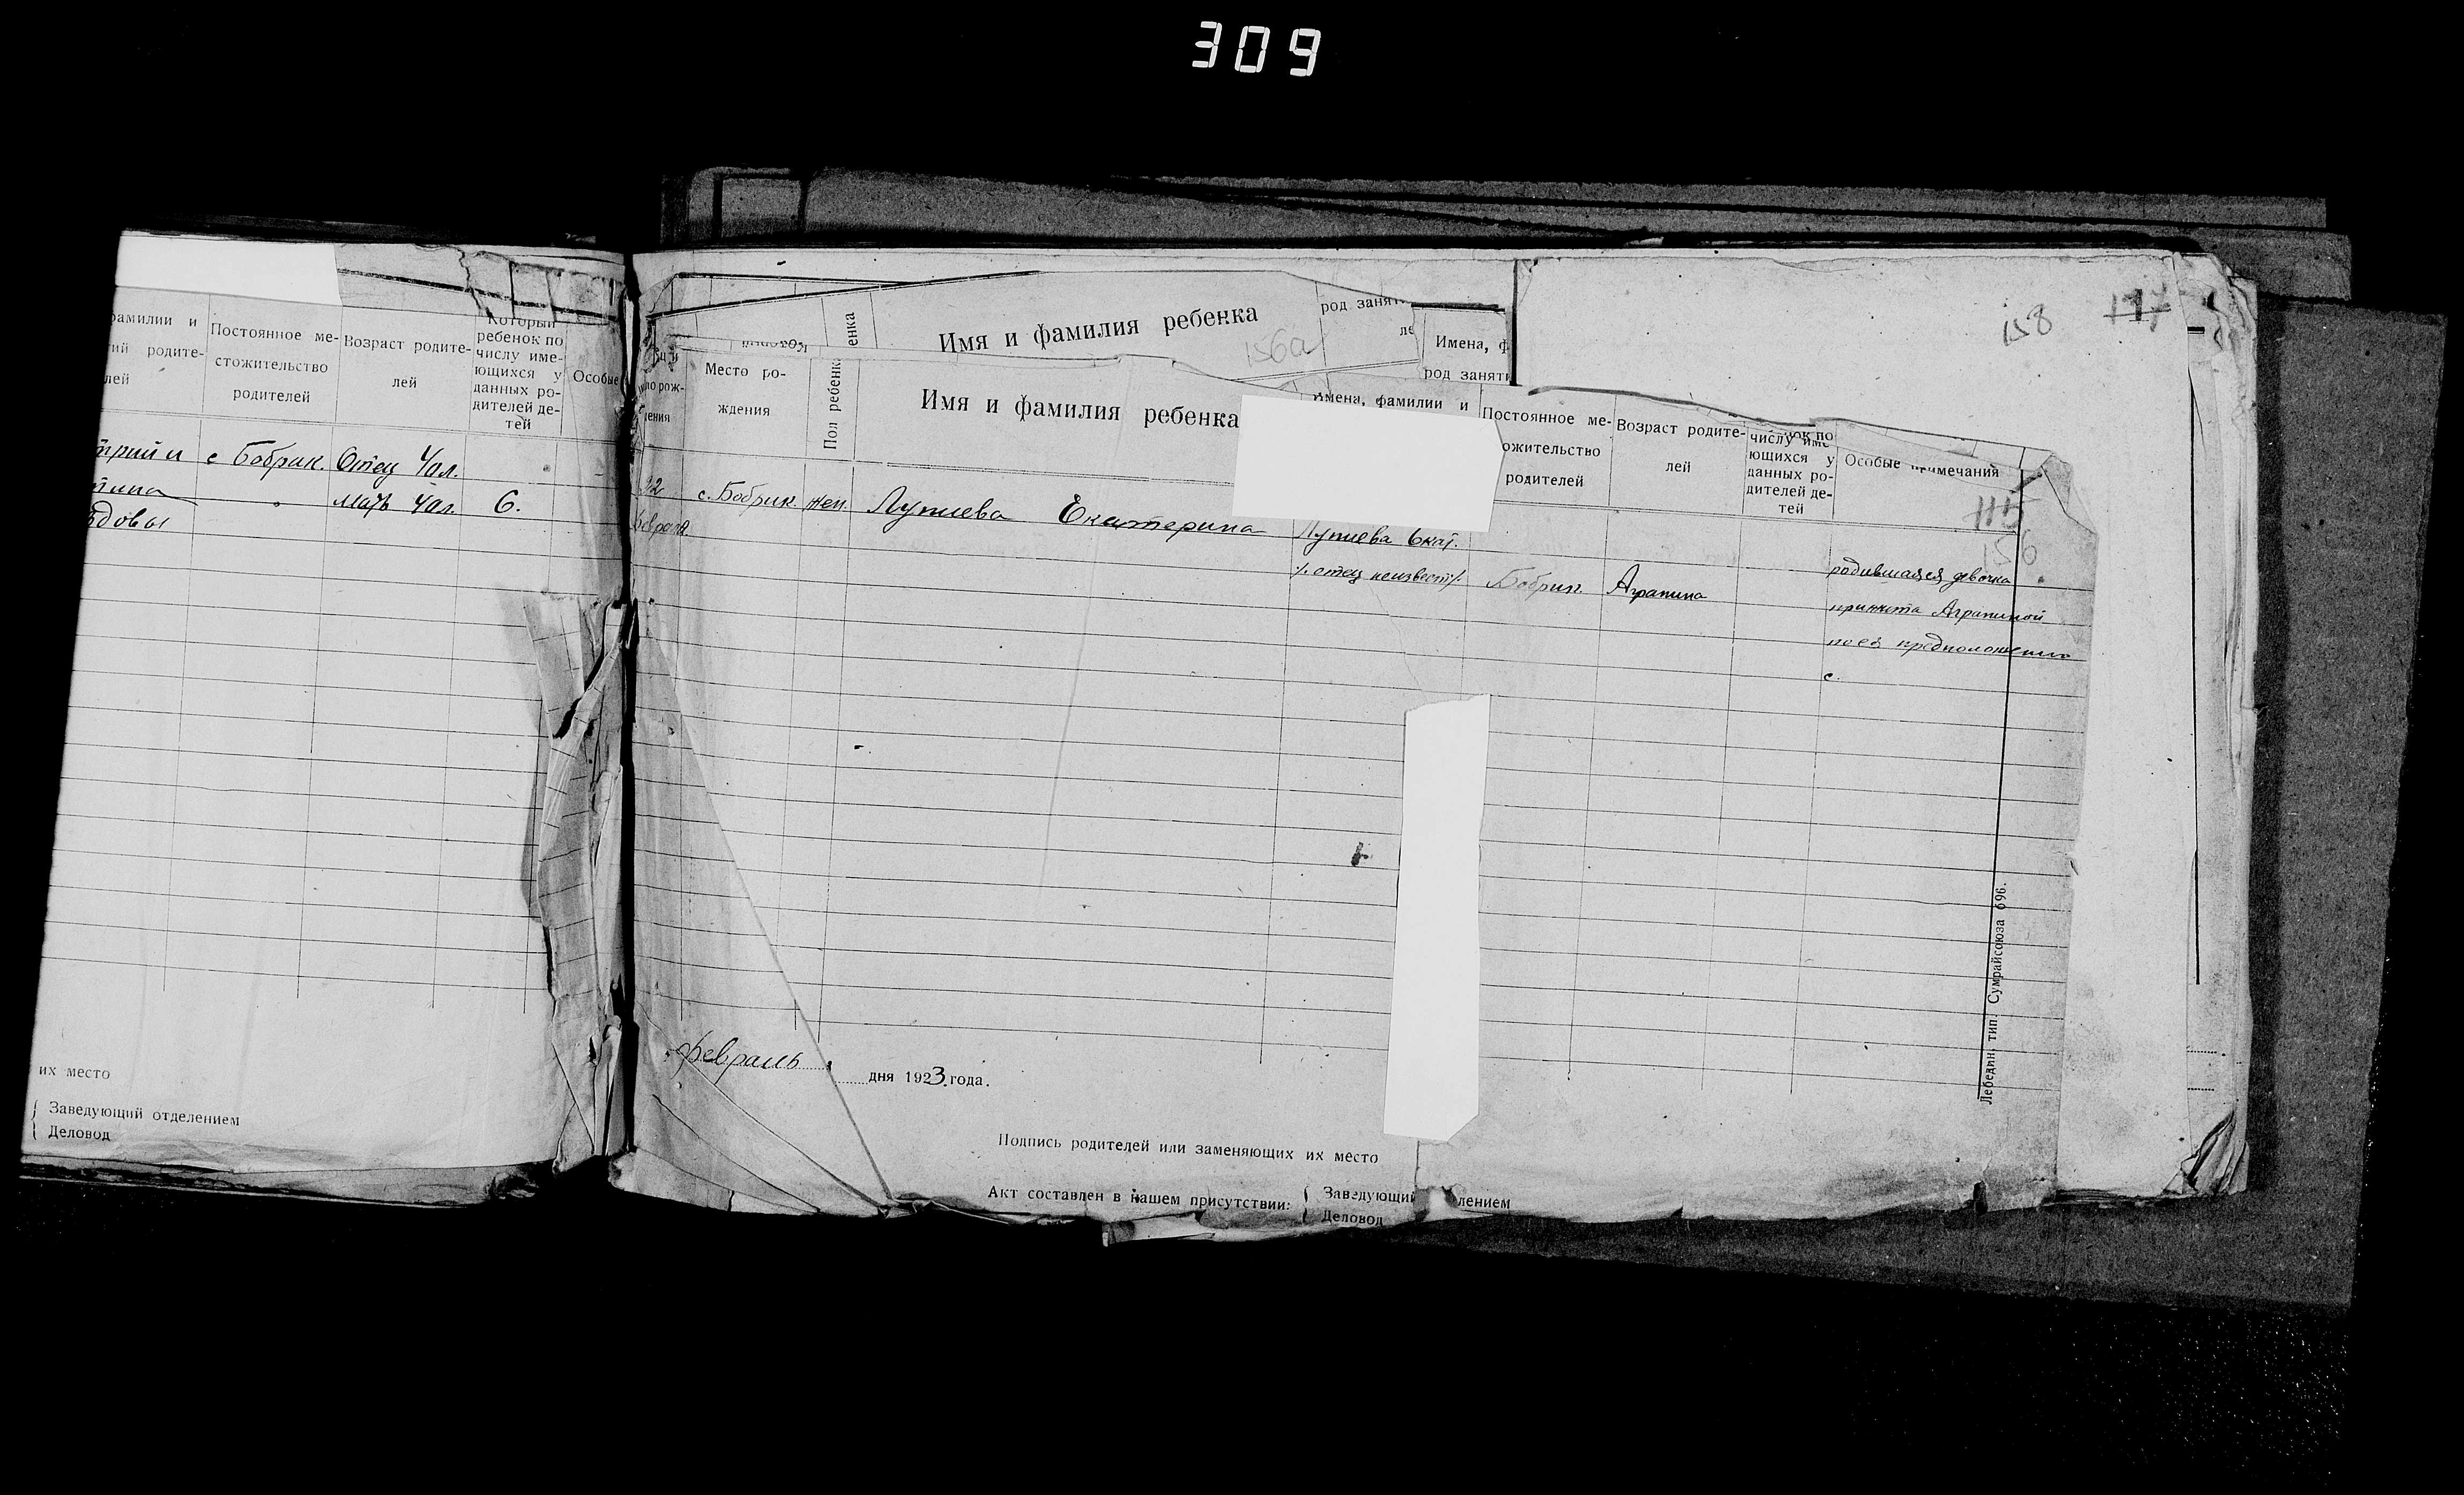 309
фамилии и
ий родите-
лей
Постоянное ме-
стожительство
родителей
Возраст родите-
лей
Который
ребенок по
числу име-
ющихся у
данных ро-
дителей де-
тей
Особые
трий и с Бобрик. Отец 40л.
мать 40л. 6.
довы
их место
Заведующий отделением
Деловод
енка
Имя и фамилия ребенка
род занят
ле
Имена, ф
род заняти
156а
158
117
рож-
дения
Место ро-
ждения
Пол ребенка
Имя и фамилия ребенка
Имена, фамилии и
Постоянное ме-
ожительство
родителей
Возраст родите-
лей
числу име-
ющихся у
данных ро-
дителей де-
тей
Особые примечания
115
156
с. Бобрик. жен. Лупиева Екатерина
Лупиева Екат.
отец неизвест. Бобрик Аграпина
родившаяся девочка
принята Аграпиной
по ея предположению
с.
Февраль дня 1923 года.
Подпись родителей или заменяющих их место
Акт составлен в нашем присутствии:
Заведующий лением
Деловод
Лебедин. тип. Сумрайсоюза 696.